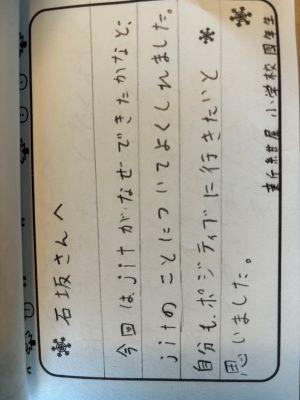 石坂さんへ
今回は、jitがなぜできたかなど、
jitのことについてよくしれました。
自分も、ポジティブに行きたいと
思いました。
新紺屋小学校四年生